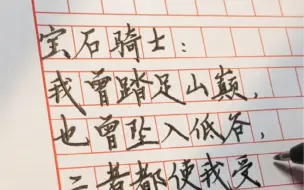 宝石骑士：
我曾踏足山巅，
也曾坠入低谷，
二者都使我受